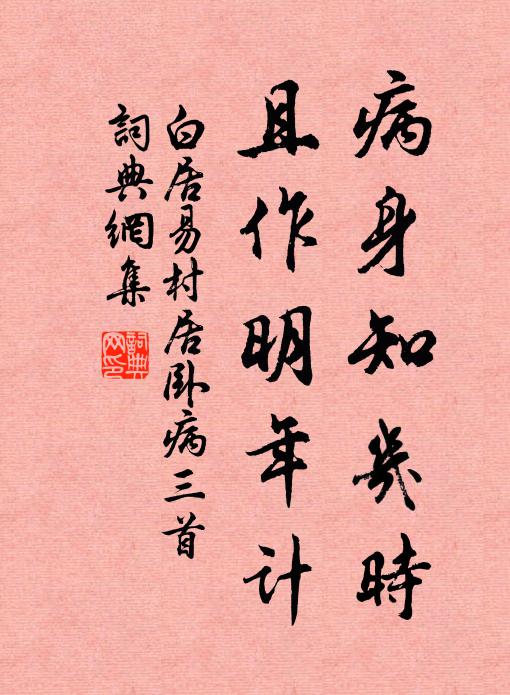 病身知幾時
且作明年計
白居易村居臥病三首
詞典網集
詞典
网印